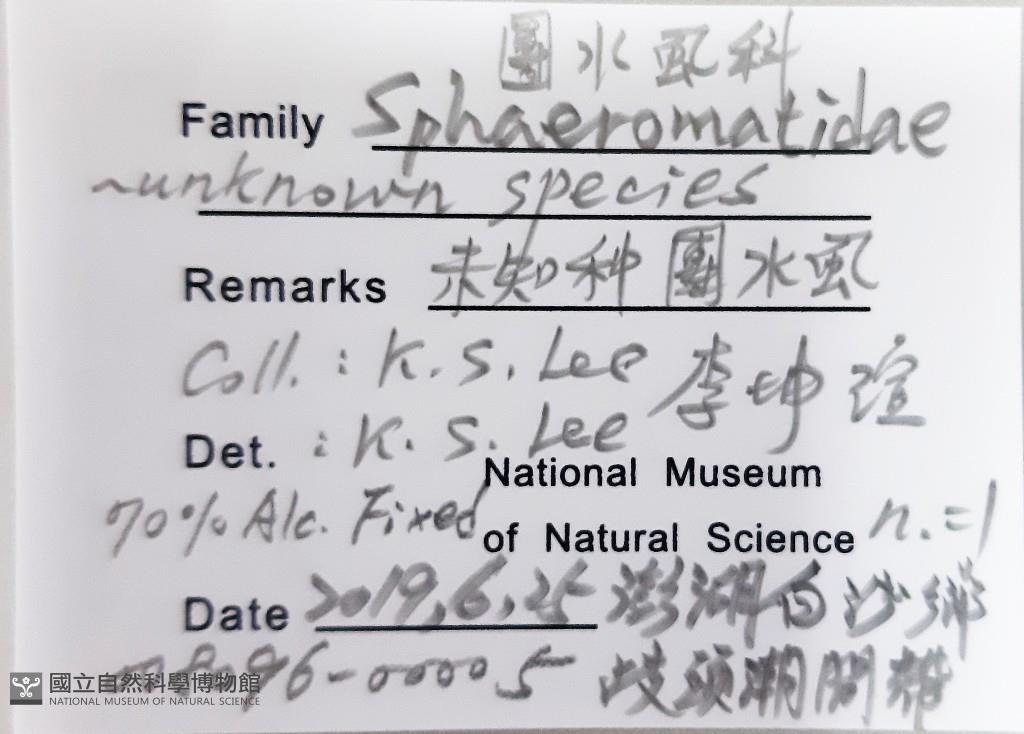 團水虱科
Family Sphaeromatidae
~unknown species
Remarks 未知种團水虱
Coll. : K. S. Lee 李坤瑄
Det. : K. S. Lee
National Museum
70% Alc. Fixed of Natural Science n.=1
Date 2019,6,25 澎湖白沙鄉
96-00005 歧頭潮間帶
國立自然科學博物館
NATIONAL MUSEUM OF NATURAL SCIENCE